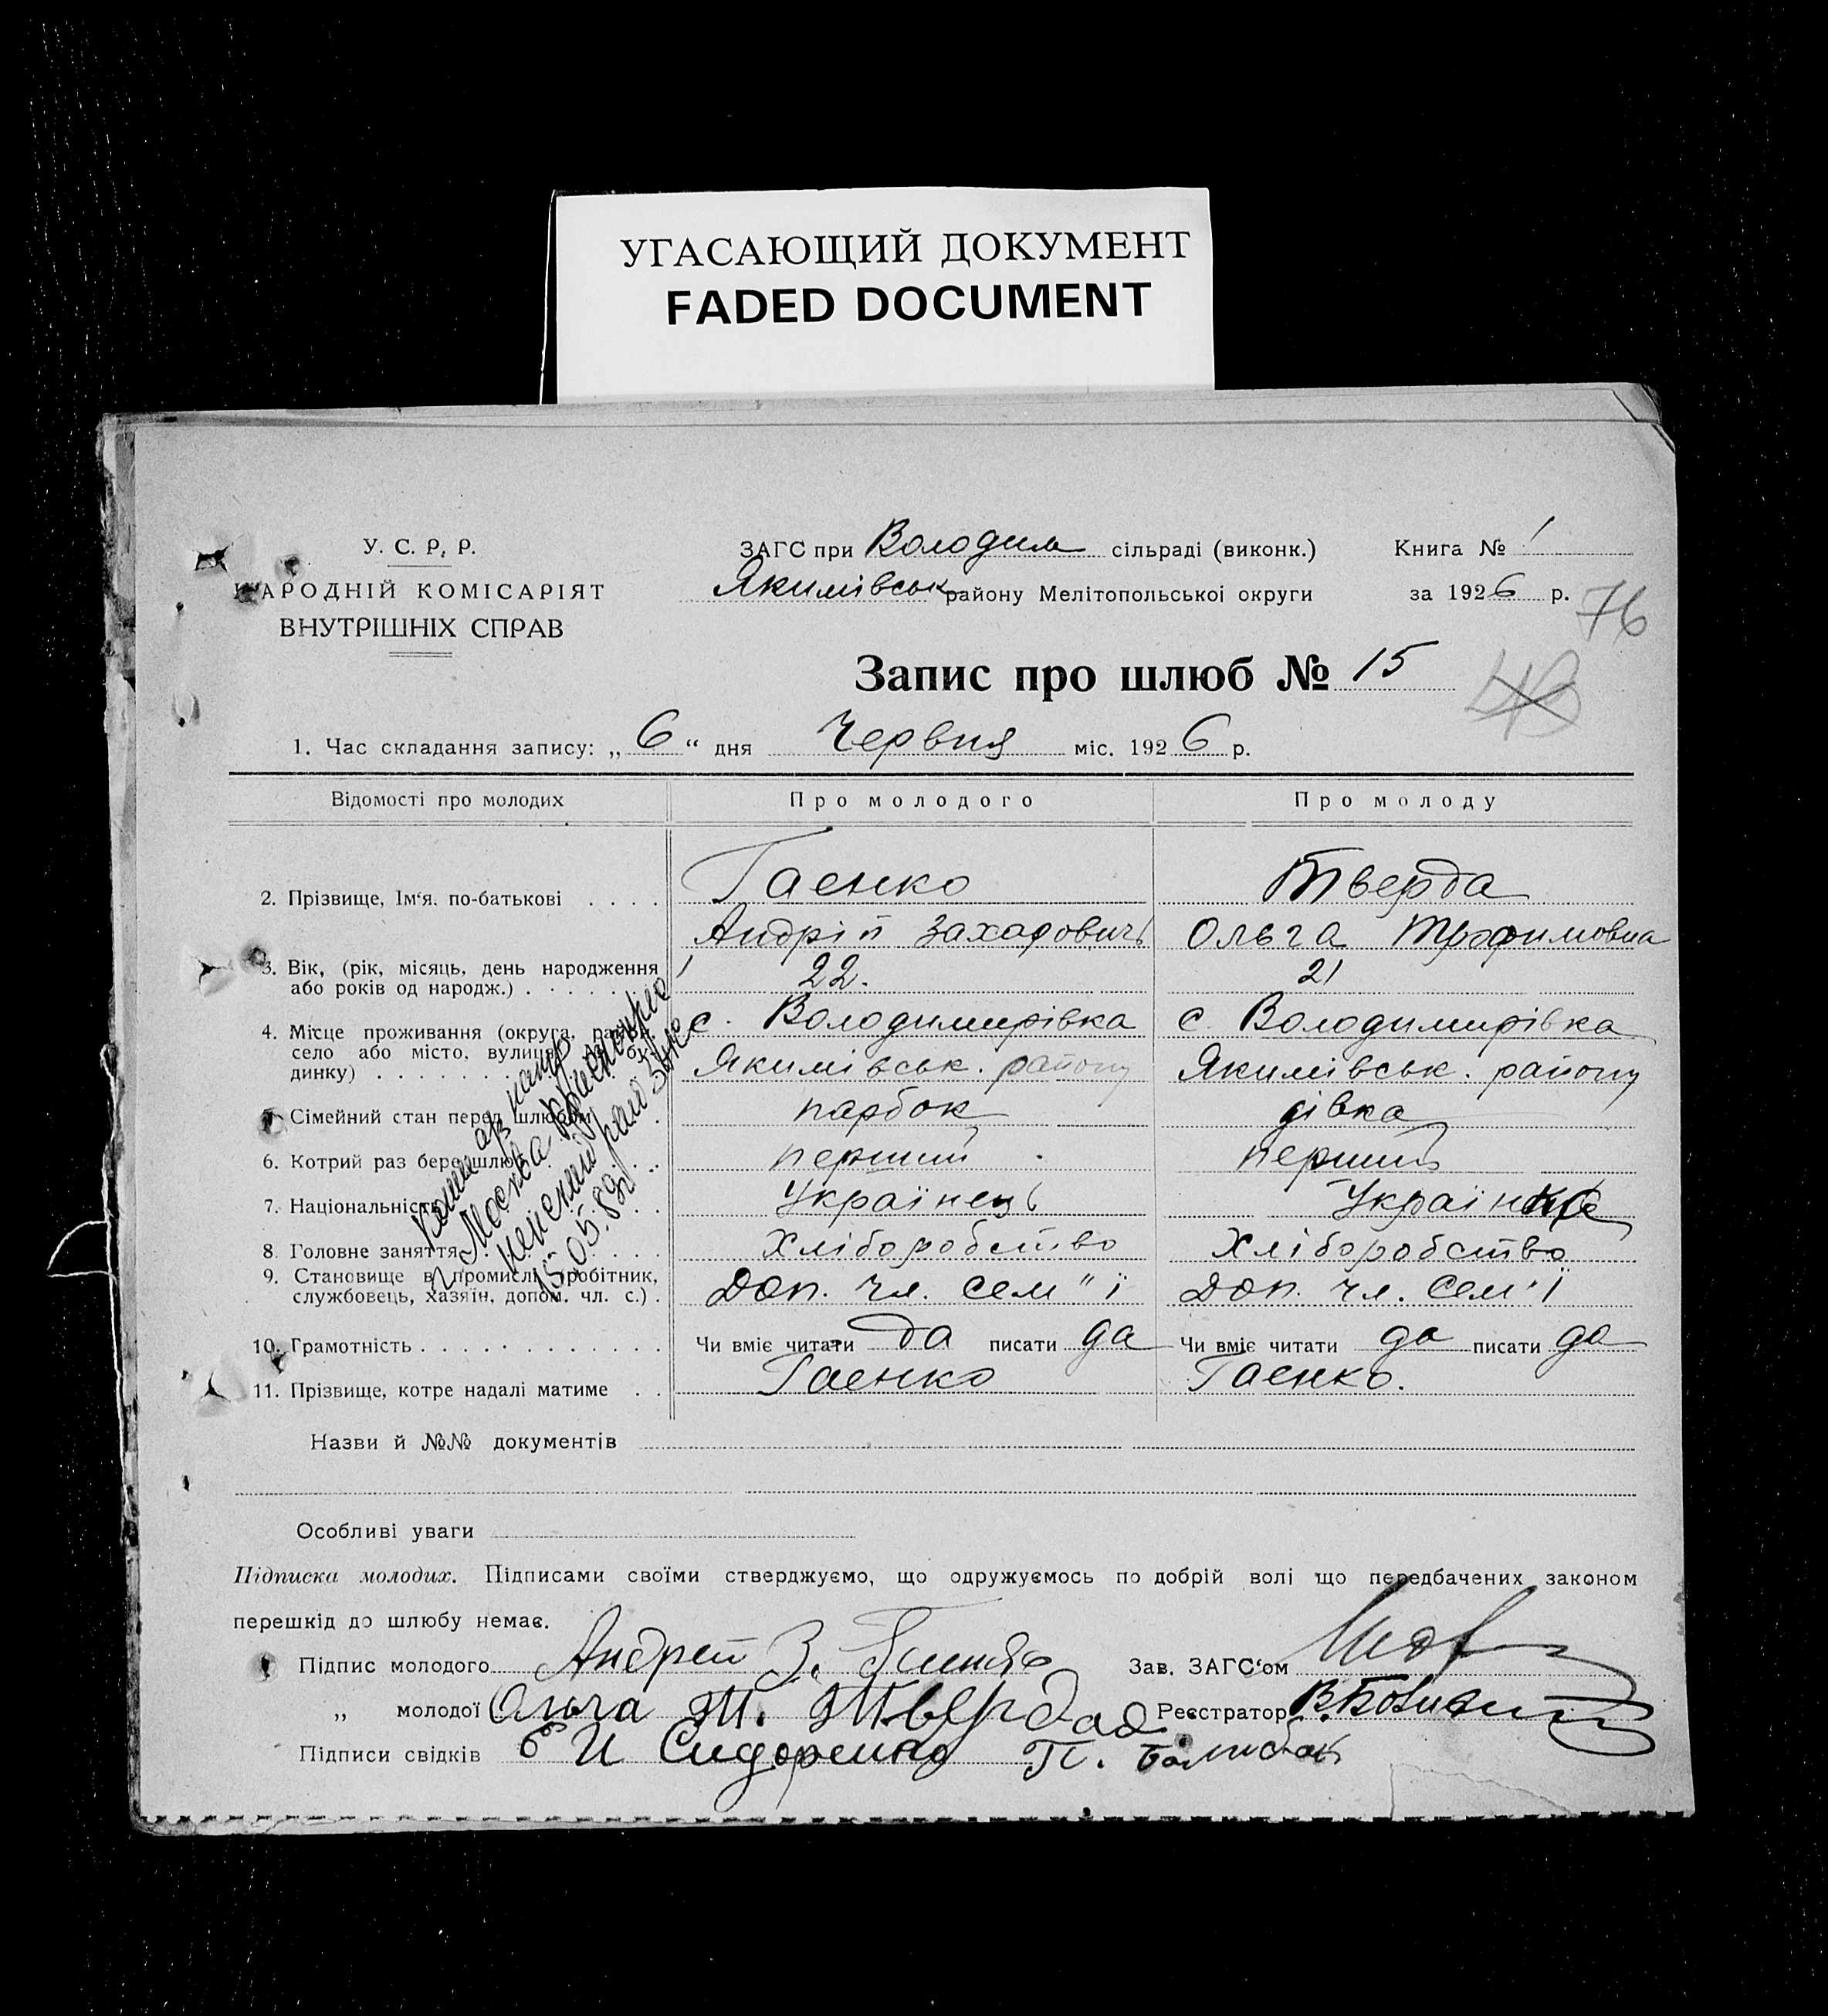 УГАСАЮЩИЙ ДОКУМЕНТ
FADED DOCUMENT
У. С. Р. Р.
НАРОДНІЙ КОМІСАРІЯТ
ВНУТРІШНІХ СПРАВ
ЗАГС при Володим сільраді (виконк.)
Якимівськ району Мелітопольської округи
Книга № 1
за 1926 р.
76
48
Запис про шлюб № 15
1. Час складання запису: „ 6 “ дня Червня міс. 1926 р.
Відомості про молодих Про молодого Про молоду
2. Прізвище, Ім‘я, по-батькові . . . . Гаєнко Тверда
Андрій Захарович Ольга Трофимовна
3. Вік, (рік, місяць, день народження
або років од народж.) . . . . . 22. 21
4. Місце проживання (округа, район, с. Володимирівка с. Володимирівка
село або місто, вулиця, бу-
динку) . . . . . . . Якимівськ. району Якимівськ. району
5. Сімейний стан перед шлюбом . парбок дівка
6. Котрий раз бере шлюб . . перший перший
7. Національність . . . Українець Українка
8. Головне заняття . . . . Хліборобство Хліборобство
9. Становище в промислі (робітник,
службовець, хазяїн, допом. чл. с.) . Доп. чл. сем"ї Доп. чл. сем'ї
10. Грамотність . . . . . . . . . . . . Чи вміє читати да писати да Чи вміє читати да писати да
11. Прізвище, котре надалі матиме . . Гаєнко Гаєнко.
Москва
15.05.89
Назви й №№ документів
Особливі уваги
Підписка молодих. Підписами своїми стверджуємо, що одружуємось по добрій волі що передбачених законом
перешкід до шлюбу немає.
Підпис молодого Андрей З. Зав. ЗАГС‘ом
„ молодої Ольга Т. Твердая Реєстратор В.
Підписи свідків Е И Сидоренко П.